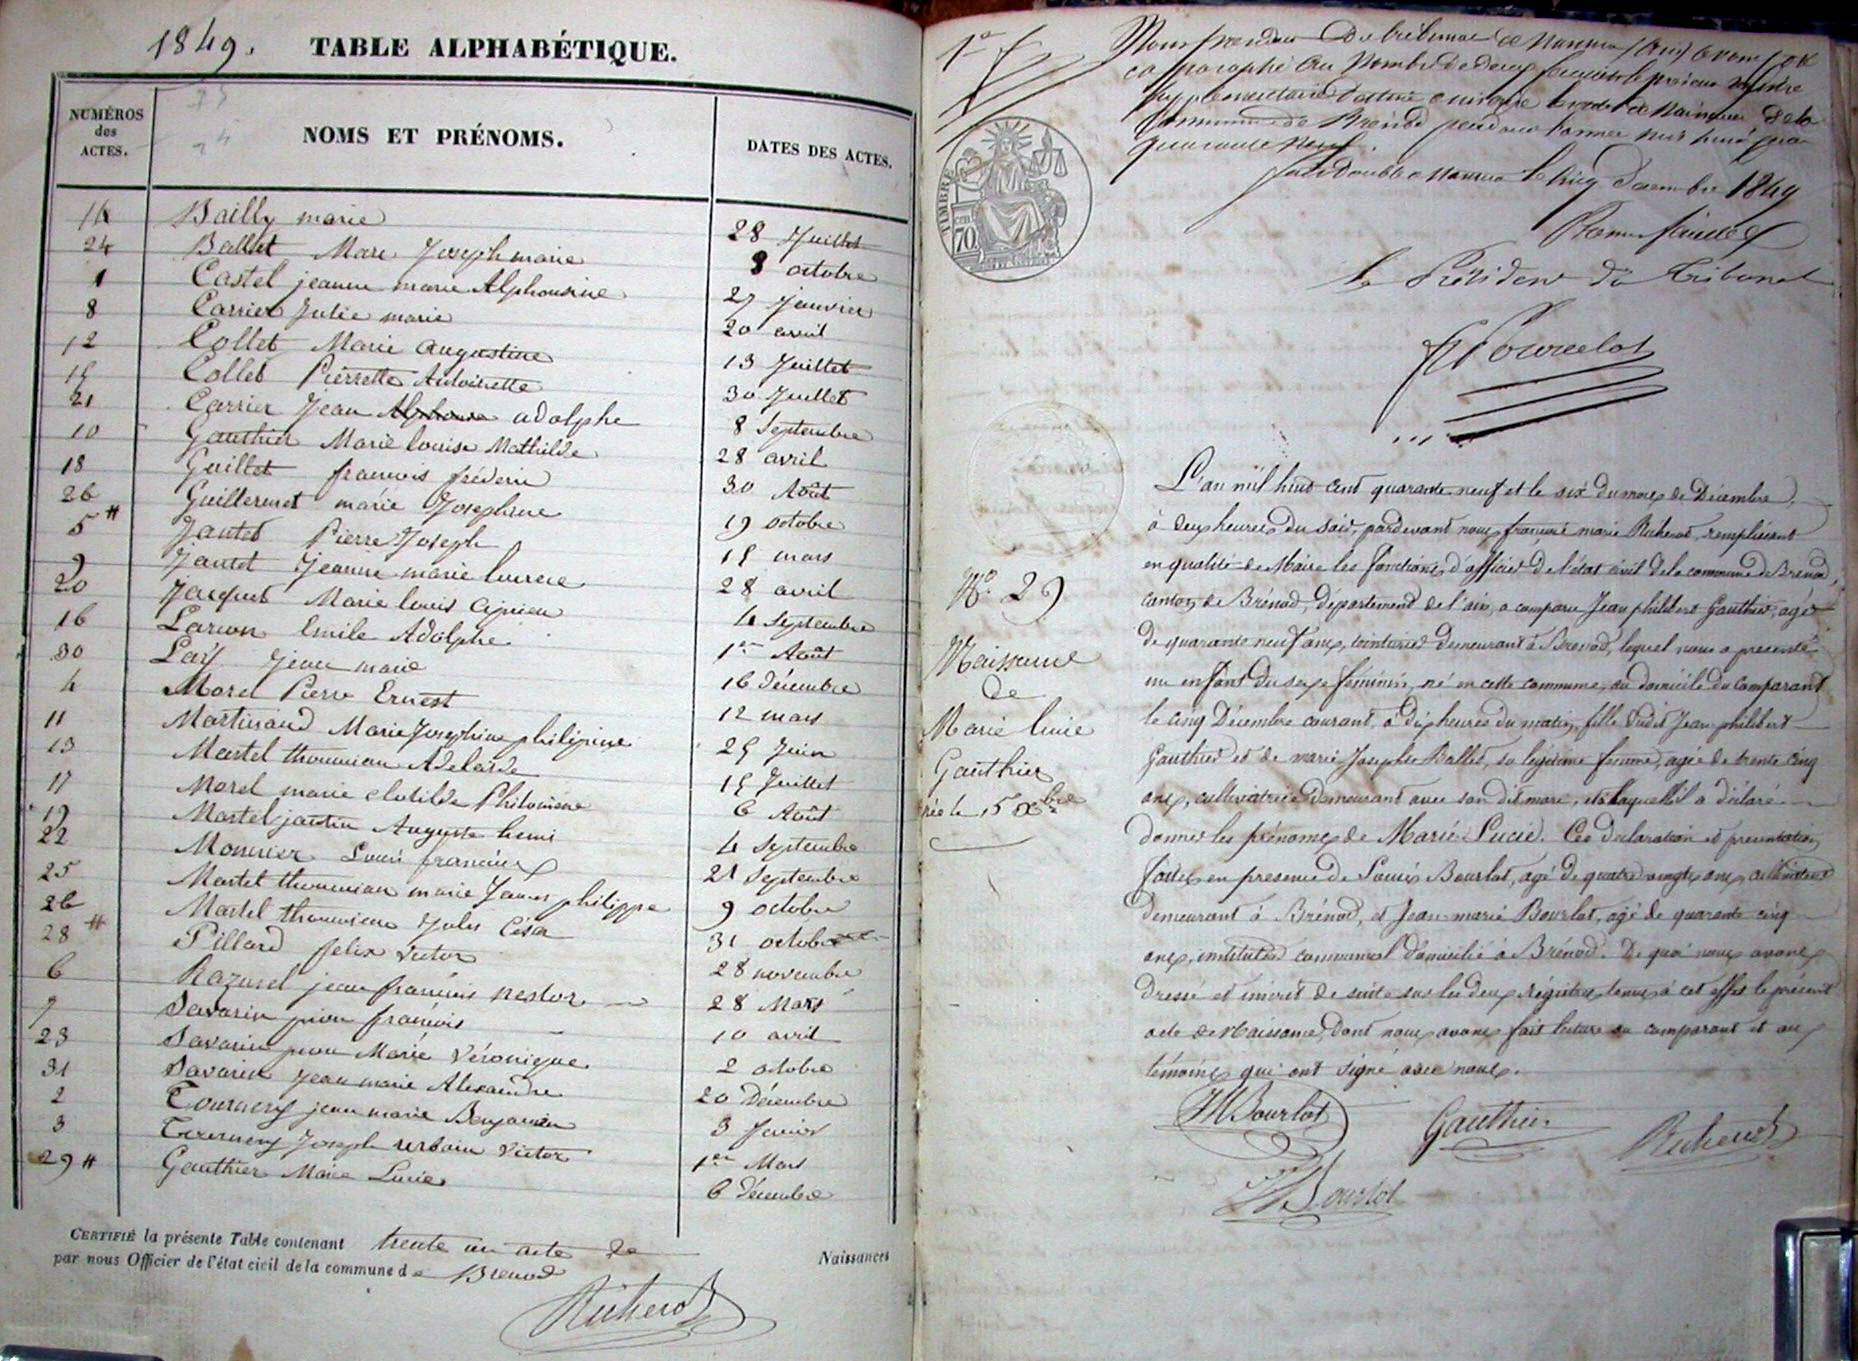 1849. TABLE ALPHABÉTIQUE.
NUMÉROS
des
ACTES.
NOMS ET PRÉNOMS.
DATES DES ACTES.
14 Bailly marie 28 Juillet
24 Ballet Marc Joseph marie 8 octobre
1 Castel jeanne marie Alphonsine 27 janvier
8 Carrier Julie marie 20 avril
12 Collet Marie augustine 13 Juillet
15 Collet Pierrette Antoinette 30 Juillet
21 Carrier Jean Alphonse adolphe 8 Septembre
10 Gauthier Marie louise Mathilde 28 avril
18 Guillet francois fréderic 30 Août
26 Guillermet marie Josephine 19 octobre
5 # Jantet Pierre Joseph 15 mars
9 Jantet Jeanne marie lucrece 28 avril
20 Jacquet Marie louis Ciprien 4 Septembre
16 Emile Adolphe 1er Août
30 Jean marie 16 Décembre
4 Morel Pierre Ernest 12 mars
11 Martinand Marie Josephine philipine 25 Juin
13 Martel thouvian Adelaïde 15 Juillet
17 Morel marie clotilde Philomène 6 Août
19 Martel jantin Auguste henri 4 Septembre
22 Monnier Louis francois 21 Septembre
25 Martel thouvian marie James philippe 9 octobre
26 Martel thouvian Jules César 31 octobre
28 # Pillard felix victor 28 novembre
6 Razurel jean francois nestor 28 Mars
7 Savarin pion francois 10 avril
23 Savarin pion Marie Véronique 2 octobre
31 Savarin jean marie Alexandre 20 Décembre
2 Tournery jean marie Benjamin 3 fevrier
3 Tournery Joseph urbain Victor 1er Mars
29 # Gauthier Marie Lucie 6 décembre
CERTIFIÉ la présente Table contenant trente un acte de Naissances
par nous Officier de l'état civil de la commune de Brenod
Richerot
1e
Nous president du tribunal de Nantua avons
et paraphé au Nombre de deux feuillets le présent registre
supplémentaire destiné a inscrire les actes de Naissance de la
Commune de Brénod pendant l'annee mil huit cent
quarante neuf.
fait double a Nantua le cinq décembre 1849
TIMBRE
70
Le Président du Tribunal
L'an mil huit cent quarante neuf et le six du mois de Décembre,
à deux heures du soir, pardevant nous francois marie Richerot, remplissant
en qualité de Maire les fonctions d'officier de l'état civil de la commune de Brenod,
canton de Brénod, département de l'ain, a comparu Jean philibert Gauthier, agé
de quarante neuf ans, demeurant à Brenod, lequel nous a présenté
un enfant du sexe féminin, né en cette commune, au domicile du comparant
le cinq Décembre courant, à dix heures du matin, fille dudit Jean philibert
Gauthier et de marie Josephte Ballet, sa légitime femme, agée de trente cinq
ans, cultivatrice demeurant avec son dit mari, et à laquelle il a déclaré
donner les prénoms de Marie Lucie. Ces declaration et presentation
faites en presence de Louis Bourlot, agé de quatre vingts ans, cultivateur
demeurant à Brénod, et Jean-marie Bourlot, agé de quarante cinq
ans, instituteur communal domicilié à Brénod. De quoi nous avons
dressé et inscrit de suite sur les deux régistres tenus à cet effet le présent
acte de Naissance, dont nous avons fait lecture au comparant et aux
témoins qui ont signé avec nous.
No. 29
Naissance
de
Marie lucie
Gauthier
née le 5 Xbre
JM Bourlot Gauthier Richerot
Bourlot